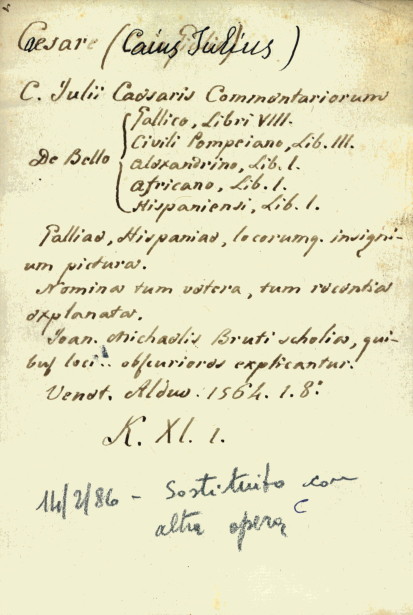 Caesar (Caius Iulius)
C. Iulii Caesaris Commentariorum
De Bello
Gallico, Libri VIII.
Civili Pompeiano, Lib. III.
Alexandrino, Lib. I.
Africano, Lib. I.
Hispaniensi, Lib. I.
Galliae, Hispaniae, locorumq. insigni-
um pictura.
Nomina tum vetera, tum recentia
explanata.
Ioan. Michaelis Bruti scholia, qui-
bus loci.. obscuriores explicantur.
Venet. Aldus. 1564. 1. 8.º
K. XI. 1.
14/2/86 - Sostituito con
altra opera